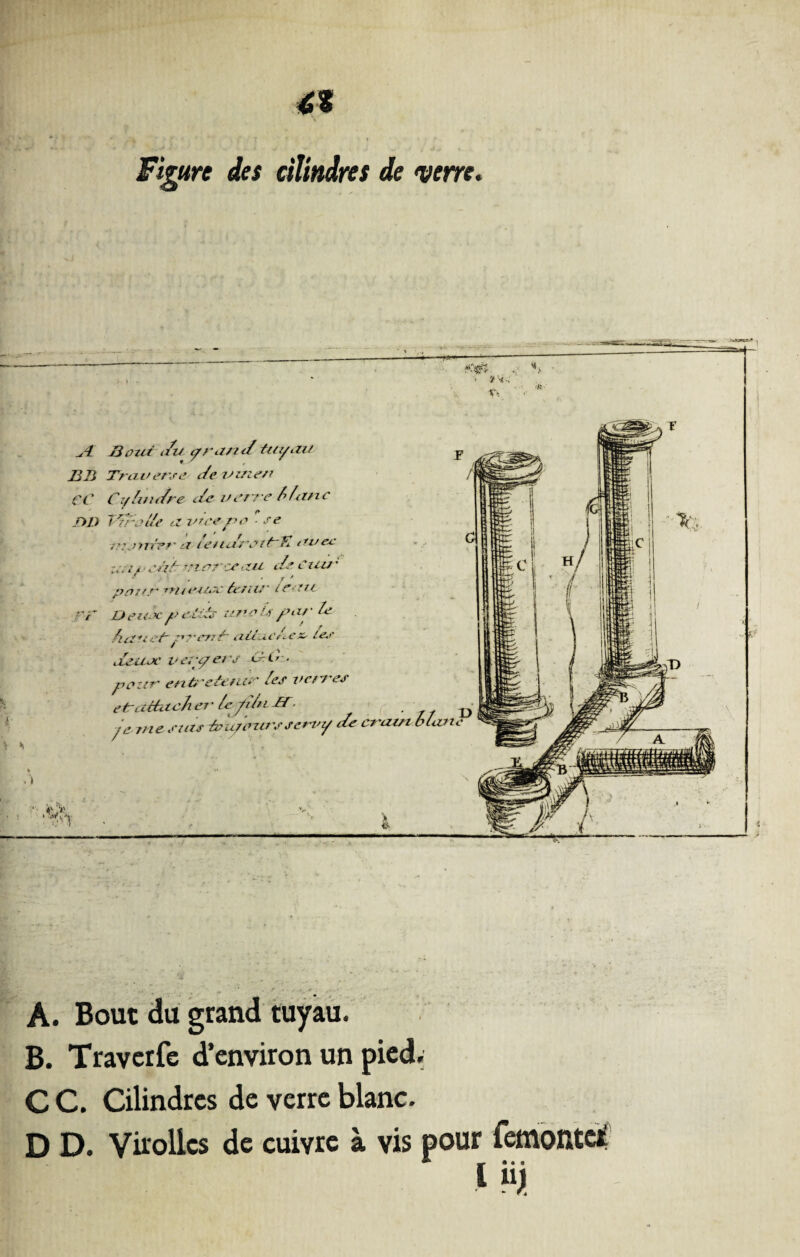 68
Figure des cilindres de verre.
A Bout du grand tuyau
BB Traverse de
CC Cylindre de verre blanc
DD Virolle a vice po - se
monter a lendroit E avec
morceau de cuir
pour mieux tenir leau
FF Deux petits par le
haut prent attachez les
deux vergers GG.
pour entretenir les verres
et attacher le filn H.
je me suis toujours servy de crain blanc
F
F
G
G
C
C
H
D
D
B
B
E
A
A. Bout du grand tuyau.
B. Traverſe d'environ un pied.
C C. Cilindres de verre blanc.
D D. Virolles de cuivre à vis pour ſemonter
I iij